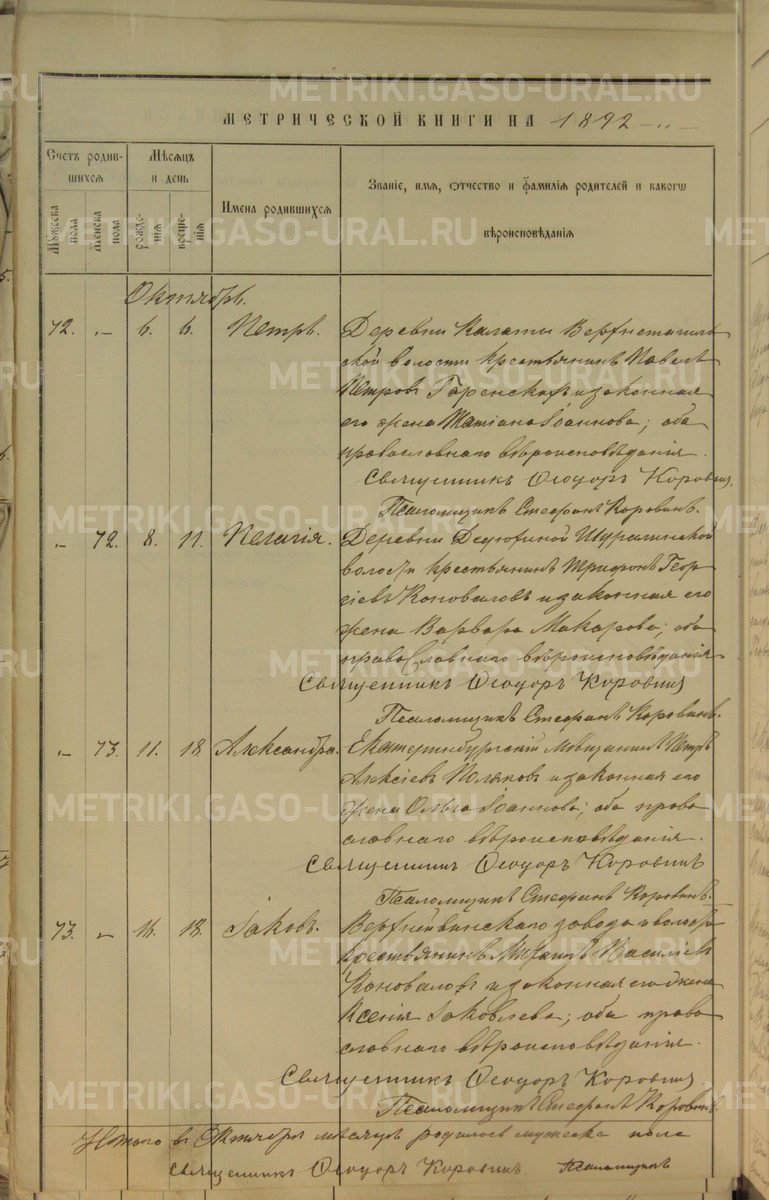 METRIKI.GASO-URAL.RU
МЕТРИЧЕСКОЙ КНИГИ НА 1892
Счетъ родившихся
Мѣсяцъ и день
Имена родившихся
Званіе, имя, отчество и фамилія родителей и какогѡ
вѣроисповѣданія
Мꙋжеска пола
Женска пола
рожденія
крещенія
Октябрь.
72. „ 6. 6. Петръ. Деревни Калаты Верхнетагиль
ской волости крестьянинъ Павелъ
Петровъ и законная
его жена Татіана Іоаннова; оба
православнаго вѣроисповѣданія.
Священникъ Ѳеодоръ Коровинъ.
Псаломщикъ Стефанъ Коровинъ.
„ 72. 8. 11. Пелагія. Деревни Шуралинской
волости крестьянинъ Трифонъ Геор
гіевъ Коноваловъ и законная его
жена Варвара Макарова; оба
православнаго вѣроисповѣданія
Священникъ Ѳеодоръ Коровинъ
Псаломщикъ Стефанъ Коровинъ.
„ 73. 11. 18 Александра. Екатеринбургскій мѣщанинъ Петръ
Алексіевъ Поляковъ и законная его
жена Ольга Іоаннова; оба право
славнаго вѣроисповѣданія.
Священникъ Ѳеодоръ Коровинъ
Псаломщикъ Стефанъ Коровинъ.
73. „ 16. 18. Іаковъ. Верхнейвинскаго завода и волости
крестьянинъ Михаилъ Василіевъ
Коноваловъ и законная его жена
Ксенія Іаковлева; оба право
славнаго вѣроисповѣданія.
Священникъ Ѳеодоръ Коровинъ.
Псаломщикъ Стефанъ Коровинъ.
Итого въ Октябрѣ мѣсяцѣ родилось мужеска пола
Священникъ Ѳеодоръ Коровинъ. Псаломщикъ